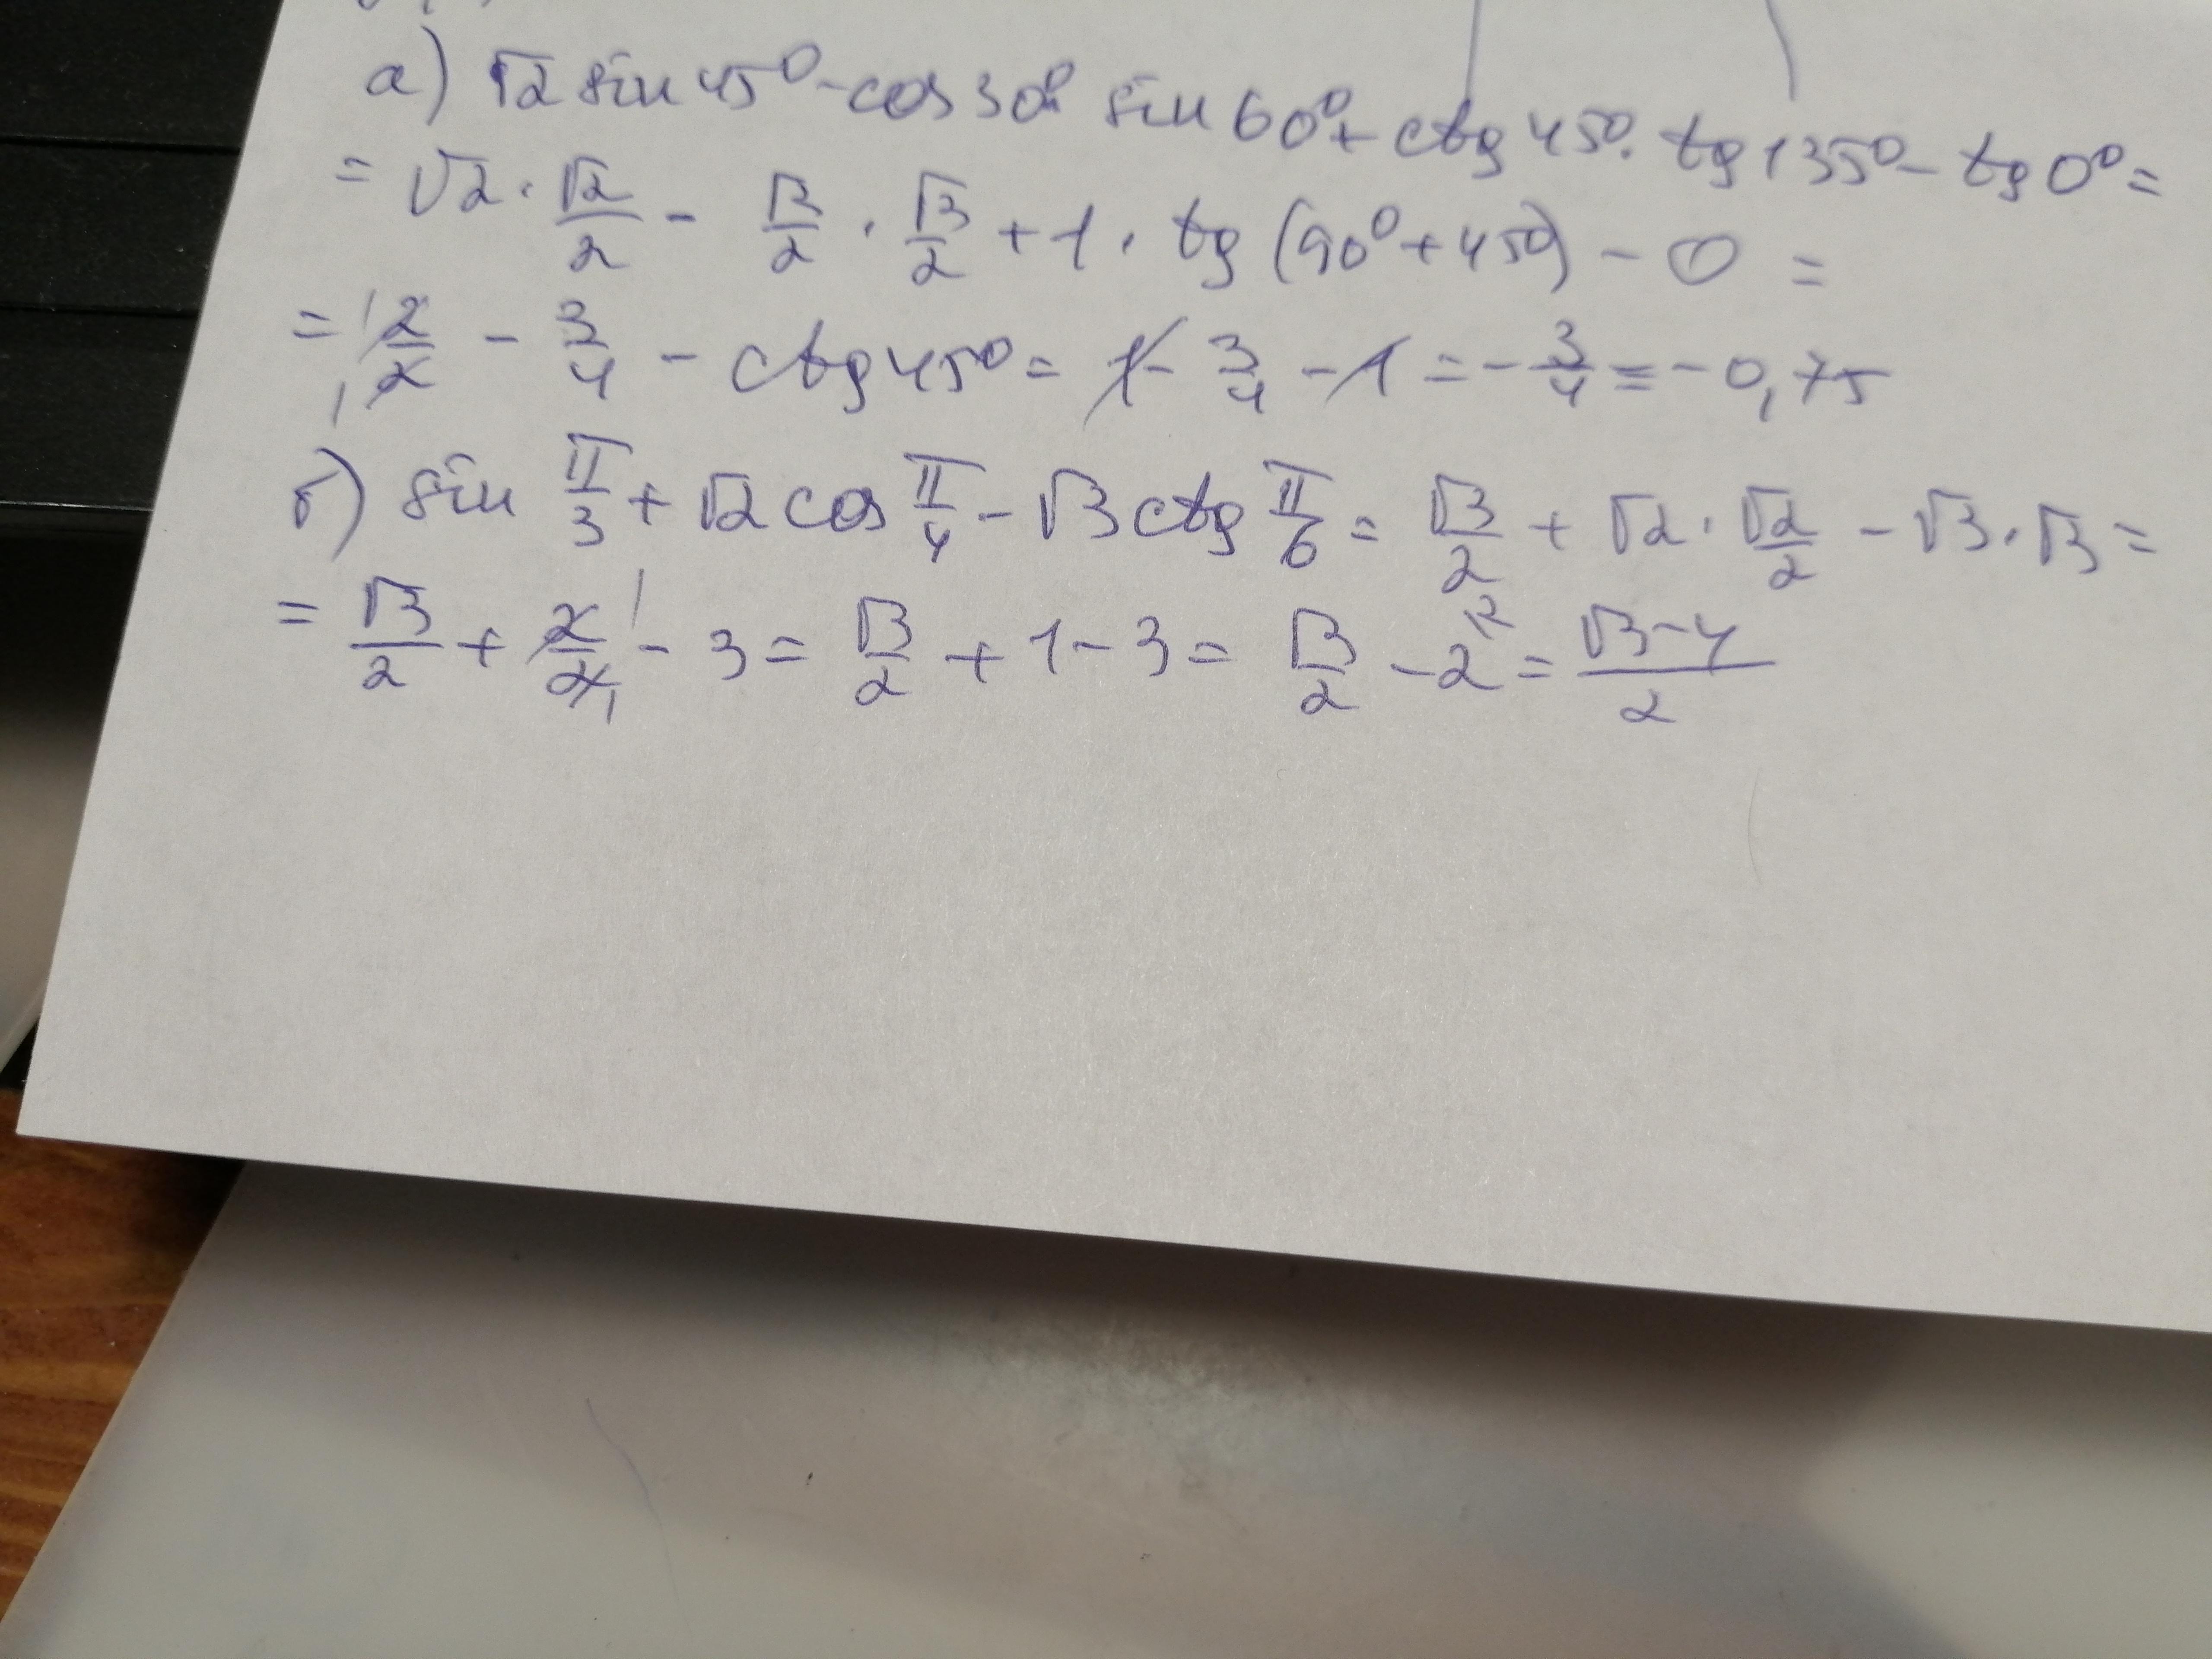 а) √2 sin 45° - cos 30° sin 60° + ctg 45° · tg 135° - tg 0° =
= √2 · √2/2 - √3/2 · √3/2 + 1 · tg (90° + 45°) - 0 =
= 2/2 - 3/4 - ctg 45° = 1 - 3/4 - 1 = -3/4 = -0,75
б) sin π/3 + √2 cos π/4 - √3 ctg π/6 = √3/2 + √2 · √2/2 - √3 · √3 =
= √3/2 + 2/2 - 3 = √3/2 + 1 - 3 = √3/2 - 2 = (√3 - 4)/2